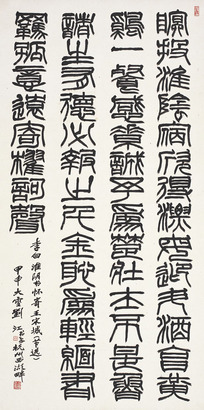 暝投淮陰宿欣得漂母迎斗酒烹黃
鷄一餐感素誠予為楚壯士不是魯
諸生有德必報之千金恥為輕緬書
羈孤意遠寄櫂謌聲
李白淮阴书怀寄王宋城(节选)
甲申大雪劉江書于杭州西湖畔